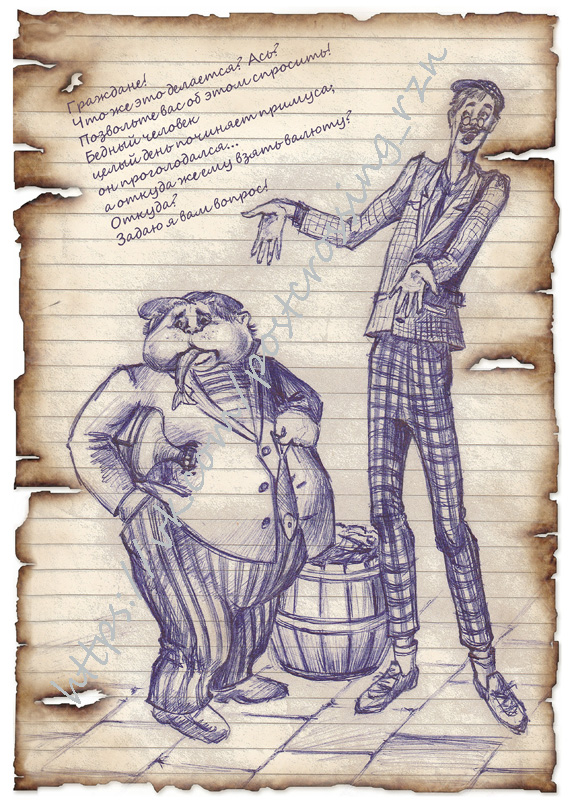 Граждане!
Что же это делается? Ась?
Позвольте вас об этом спросить!
Бедный человек
целый день починяет примуса;
он проголодался...
а откуда же ему взять валюту?
Откуда?
Задаю я вам вопрос!
https://vk.com/postcrossing_rzn